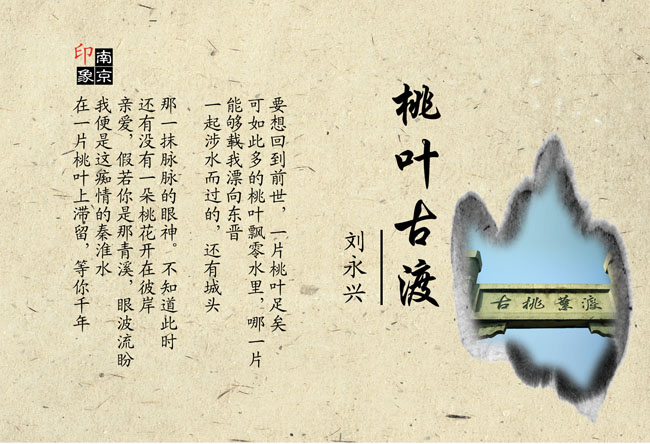 古桃葉渡
桃叶古渡
刘永兴
要想回到前世，一片桃叶足矣
可如此多的桃叶飘零水里，哪一片
能够载我漂向东晋
一起涉水而过的，还有城头
那一抹脉脉的眼神。不知道此时
还有没有一朵桃花开在彼岸
亲爱，假若你是那青溪，眼波流盼
我便是这痴情的秦淮水
在一片桃叶上滞留，等你千年
南京
印象